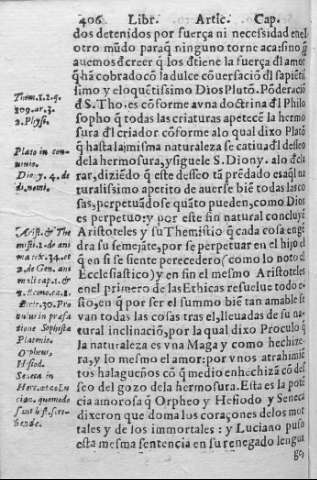 406 Libr. Artic. Cap.
dos detenidos por fuerça ni necessidad enel
otro mũdo paraq̃ ninguno torne aca: sino q̃
auemos đ creer q̃ los đtiene la fuerça đl amor
q̃ hã cobrado cõ la dulce cõuersaciõ đl sapiẽtis
simo y eloquẽtissimo Dios Plutõ. Põderaciõ
đ S. Tho. es cõforme a vna doctrina đl Philo
sopho q̃ todas las criaturas apetecẽ la hermo
sura đl criador cõforme alo qual dixo Platõ
q̃ hasta la misma naturaleza se catiua đl desseo
dela hermosura, y siguele S. Diony. alo đcla
rar, diziẽdo q̃ este desseo tã prẽdado es aql na
turalissimo apetito de auerse biẽ todas las co
sas, perpetuãdose quãto pueden, como Dios
es perpetuo: y por este fin natural concluye
Aristoteles y su Themistio q̃ cada cosa engẽ
dra su semejãte, por se perpetuar en el hijo el
q̃ en si se siente perecedero (como lo noto el
Ecclesiastico) y en fin el mesmo Aristoteles
en el primero de las Ethicas resuelue todo e-
sto, en q̃ por ser el summo biẽ tan amable se
van todas las cosas tras el, lleuadas de su na-
tural inclinaciõ, por la qual dixo Proculo q̃
la naturaleza es vna Maga y como hechize-
ra, y lo mesmo el amor: por vnos atrahimiẽ
tos halagueños cõ q̃ medio enhechizã cõ de-
sseo del gozo dela hermosura. Esta es la potẽ
cia amorosa q̃ Orpheo y Hesiodo y Seneca
dixeron que doma los coraçones delos mor
tales y de los immortales: y Luciano puso
esta mesma sentencia en su renegado lenguà
ge,
Thom. 1. 2. q.
109. ar. 3.
2. Physi.
Plato in con-
uiuio.
Diony. 4. de
di. nomi.
Arist. & The
misti. 2. de ani
ma
2. de Gen. ani
Orpheus,
Hesiod.
Seneca in